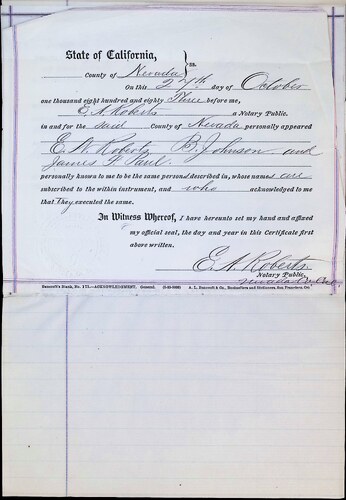 State of California, } ss.
County of Nevada
On this 27th day of October
one thousand eight hundred and eighty Three before me,
E. A. Roberts a Notary Public.
in and for the said County of Nevada personally appeared
E. W. Roberts B. Johnson and
James P. Paul.
personally known to me to be the same persons described in, whose names are
subscribed to the within instrument, and who acknowledged to me
that They executed the same.
In Witness Whereof, I have hereunto set my hand and affixed
my official seal, the day and year in this Certificate first
above written.
E. A. Roberts
Notary Public,
Bancroft's Blank, No. 171.—ACKNOWLEDGMENT, General. A. L. Bancroft & Co., Booksellers and Stationers, San Francisco, Cal.